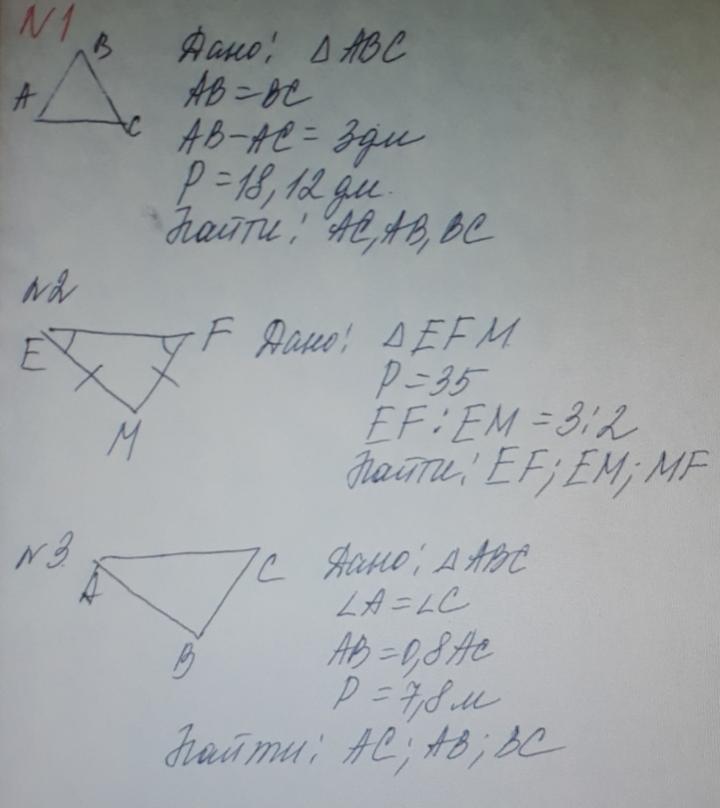 N1
B
A
C
Дано: △ ABC
AB = BC
AB - AC = 3 дм
P = 18,12 дм.
Найти: AC, AB, BC
N2
E
F
M
Дано: △ EFM
P = 35
EF : EM = 3:2
Найти: EF; EM; MF
N3.
A
C
B
Дано: △ ABC
∠A = ∠C
AB = 0,8 AC
P = 7,8 м
Найти: AC; AB; BC